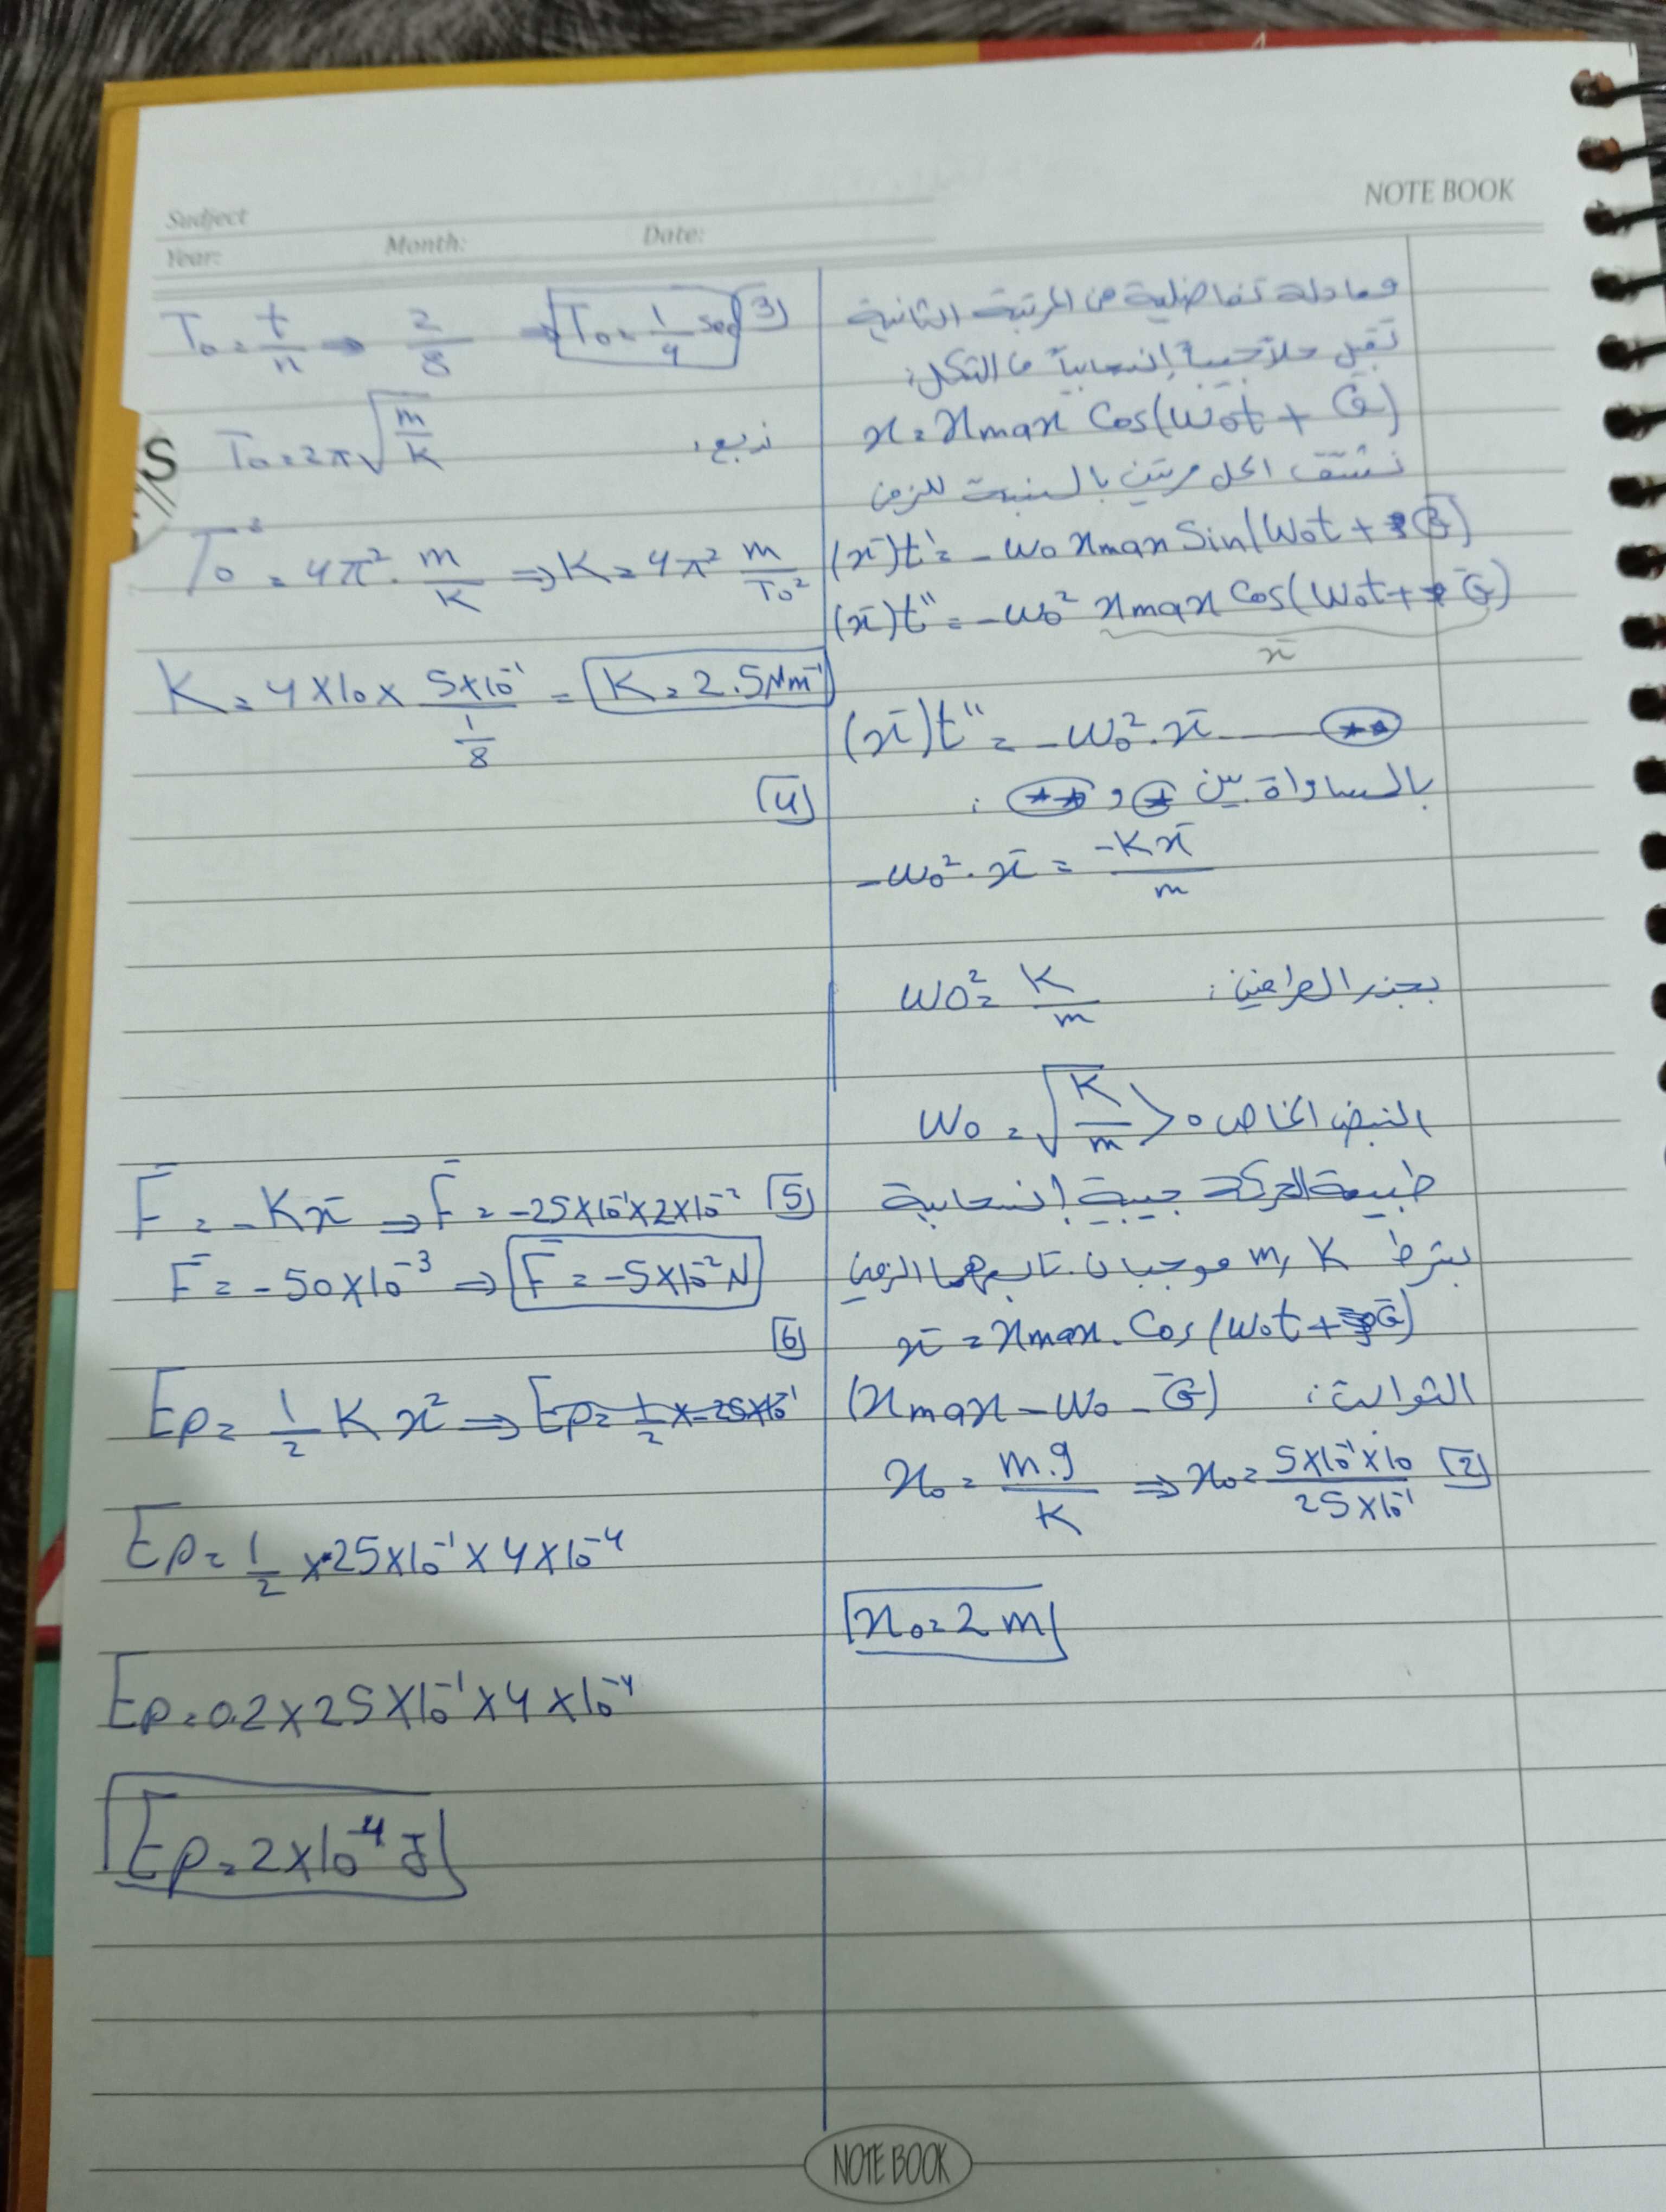 NOTE BOOK
Sudject
Year: Month: Date:
معادلة تفاضلية من المرتبة الثانية
تقبل حلاً جيبياً إنسحابياً من الشكل:
x = xmax Cos(ω₀t + φ̄)
نشتق الحل مرتين بالنسبة للزمن
(x̄)t' = -ω₀ xmax Sin(ω₀t + φ̄)
(x̄)t'' = -ω₀² xmax Cos(ω₀t + φ̄)
x̄
(x̄)t'' = -ω₀².x̄ ---- **
بالمساواة بين * و ** :
-ω₀².x̄ = -Kx̄/m
ω₀² = K/m بجذر الطرفين:
ω₀ = √(K/m) > 0 النبض الخاص
طبيعة الحركة جيبية إنسحابية
بشرط m, K موجبان
x̄ = xmax. Cos(ω₀t + φ̄)
الثوابت: (xmax - ω₀ - φ̄)
[2] x₀ = m.g/K ⇒ x₀ = 5×10⁻¹×10/25×10⁻¹
x₀ = 2 m
[3] T₀ = t/n → 2/8 ⇒ T₀ = 1/4 sec
T₀ = 2π√(m/K) نربع:
T₀² = 4π². m/K ⇒ K = 4π² m/T₀²
K = 4×10× 5×10⁻¹/(1/8) = K = 2.5 Nm⁻¹
[4]
[5] F̄ = -Kx̄ ⇒ F̄ = -25×10⁻¹×2×10⁻²
F̄ = -50×10⁻³ ⇒ F̄ = -5×10⁻² N
[6]
Ep = 1/2 K x² ⇒ Ep = 1/2 × 25×10⁻¹
Ep = 1/2 × 25×10⁻¹ × 4×10⁻⁴
Ep = 0.2 × 25×10⁻¹ × 4×10⁻⁴
Ep = 2×10⁻⁴ J
NOTE BOOK